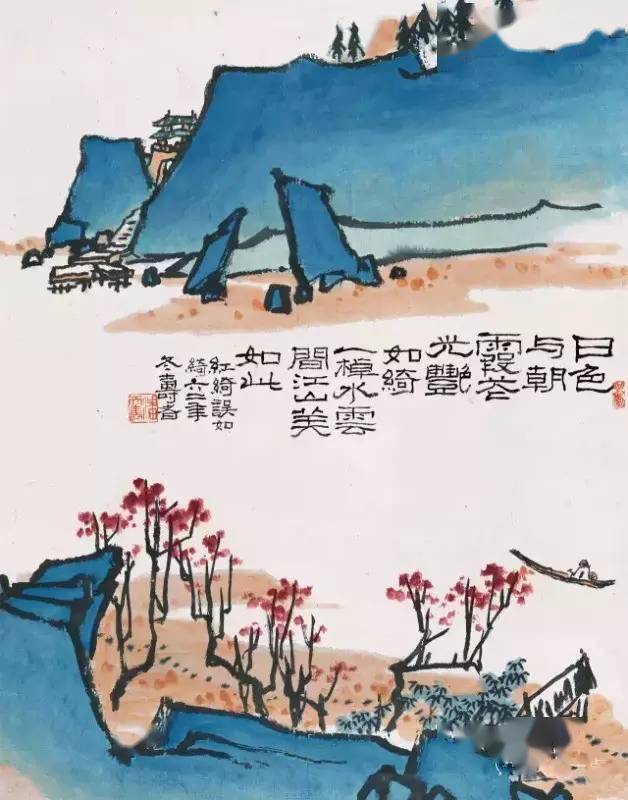 日色
与朝
霞花
光艷
如綺
一棹水雲
間江山美
如此
紅綺誤如
綺六二年
冬壽者